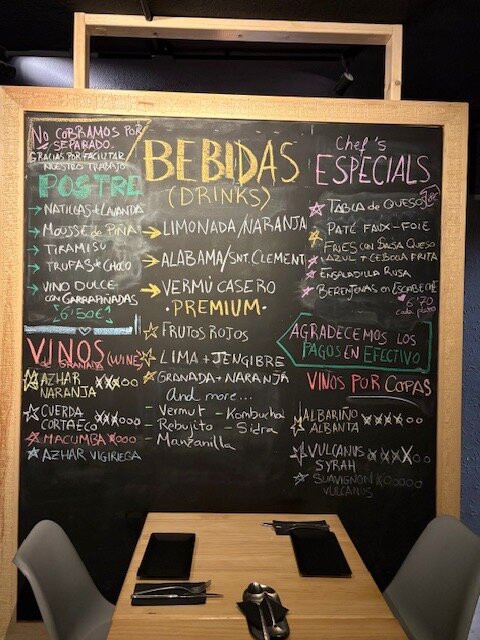 No COBRAMOS POR
SEPARADO.
GRACIAS POR FACILITAR
NUESTRO TRABAJO
POSTRE
→ NATILLAS de LAVANDA
→ MOUSSE de PIÑA
→ TIRAMISU
→ TRUFAS de CHOCO
→ VINO DULCE
con GARRAPIÑADAS
6'50€
VINOS (WINE)
de GRANADA
AZHAR
NARANJA
CUERDA
CORTA ECO
MACUMBA
AZHAR VIGIRIEGA
BEBIDAS
(DRINKS)
→ LIMONADA/NARANJA
→ ALABAMA/SNT. CLEMENT
→ VERMÚ CASERO
·PREMIUM·
FRUTOS ROJOS
LIMA + JENGIBRE
GRANADA + NARANJA
And more...
- Vermut - Kombucha
- Rebujito - Sidra
- Manzanilla
Chef's
ESPECIALS
TABLA de QUESOS
PATÉ FAUX-FOIE
con SALSA QUESO
AZUL + CEBOLLA FRITA
ENSALADILLA RUSA
BERENJENAS en ESCABECHE
6'70
cada plato
AGRADECEMOS LOS
PAGOS EN EFECTIVO
VINOS POR COPAS
ALBARIÑO
ALBANTA
VULCANUS
SYRAH
SUAVIGNON
VULCANUS